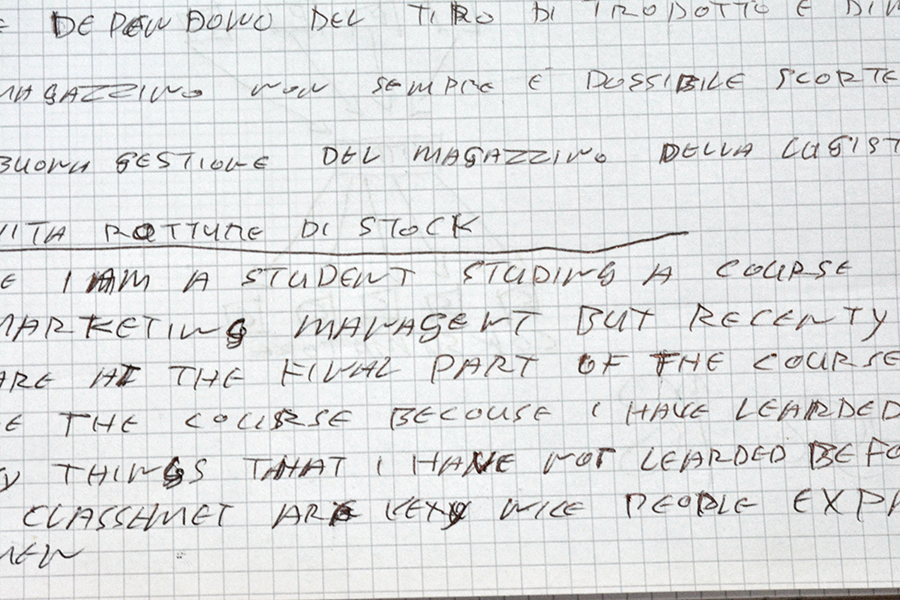 E DEPENDONO DEL TIRO DI TRODOTTO E DI
MAGAZZINO NON SEMPRE E DOSSIBILE SCORTE
BUONA GESTIONE DEL MAGAZZINO DELLA LOGIST
VITA ROTTURE DI STOCK
E I AM A STUDENT STUDING A COURSE
MARKETING MANAGENT BUT RECENTY
ARE AT THE FINAL PART OF THE COURSE
E THE COURSE BECOUSE I HAVE LEARDED
Y THINGS THAT I HAVE NOT LEARDED BEFO
CLASSHMET ARE VERY NICE PEOPLE EXP
MEN